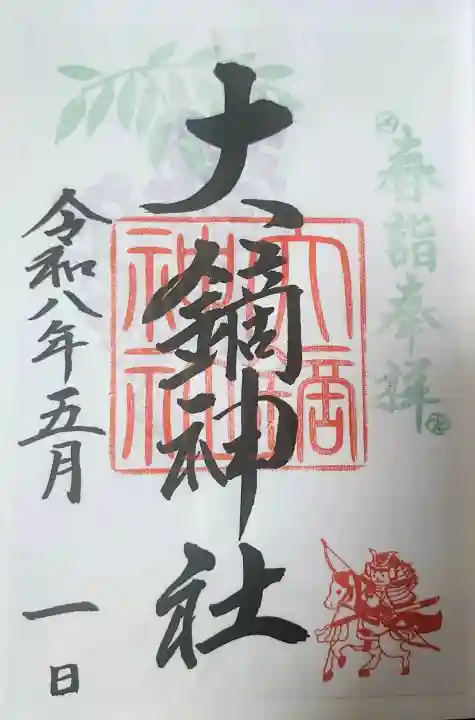 春詣奉拝
大鏑神社
大鏑神社
令和八年五月一日